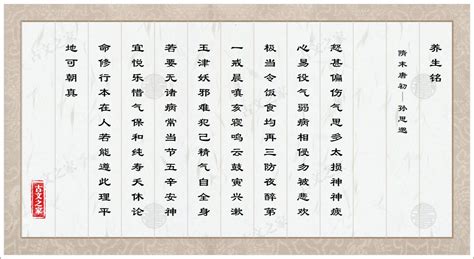 养生铭
隋末唐初—孙思邈
怒甚偏伤气思多太损神神疲
心易役气弱病相侵勿被悲欢
极当令饭食均再三防夜醉第
一戒晨嗔亥寝鸣云鼓寅兴漱
玉津妖邪难犯己精气自全身
若要无诸病常当节五辛安神
宜悦乐惜气保和纯寿夭休论
命修行本在人若能遵此理平
地可朝真
古文之家